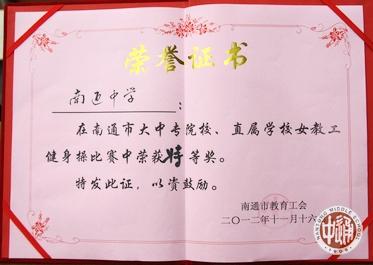 荣誉证书
南通中学:
在南通市大中专院校、直属学校女教工
健身操比赛中荣获特等奖。
特发此证,以资鼓励。
南通市教育工会
二〇一二年十一月十六